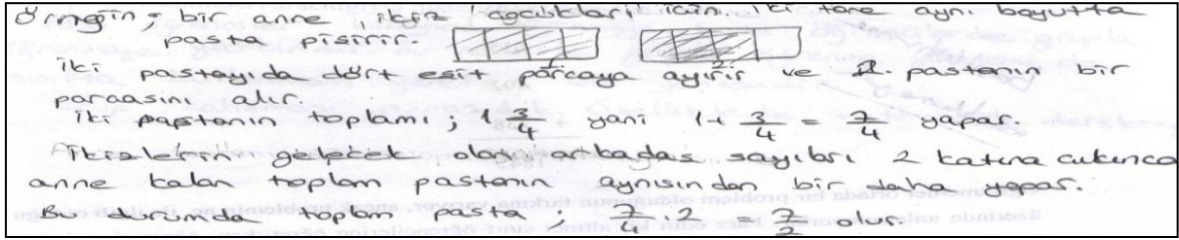 Örneğin; bir anne ikiz çocukları için iki tane aynı boyutta
pasta pişirir.
1 2
İki pastayıda dört eşit parçaya ayırır ve 2. pastanın bir
parçasını alır.
İki pastanın toplamı; 1 3/4 yani 1+ 3/4 = 7/4 yapar.
İkizlerin gelecek sayıları 2 katına çıkınca
anne kalan toplam pastanın aynısından bir daha yapar.
Bu durumda toplam pasta; 7/4 . 2 = 7/2 olur.